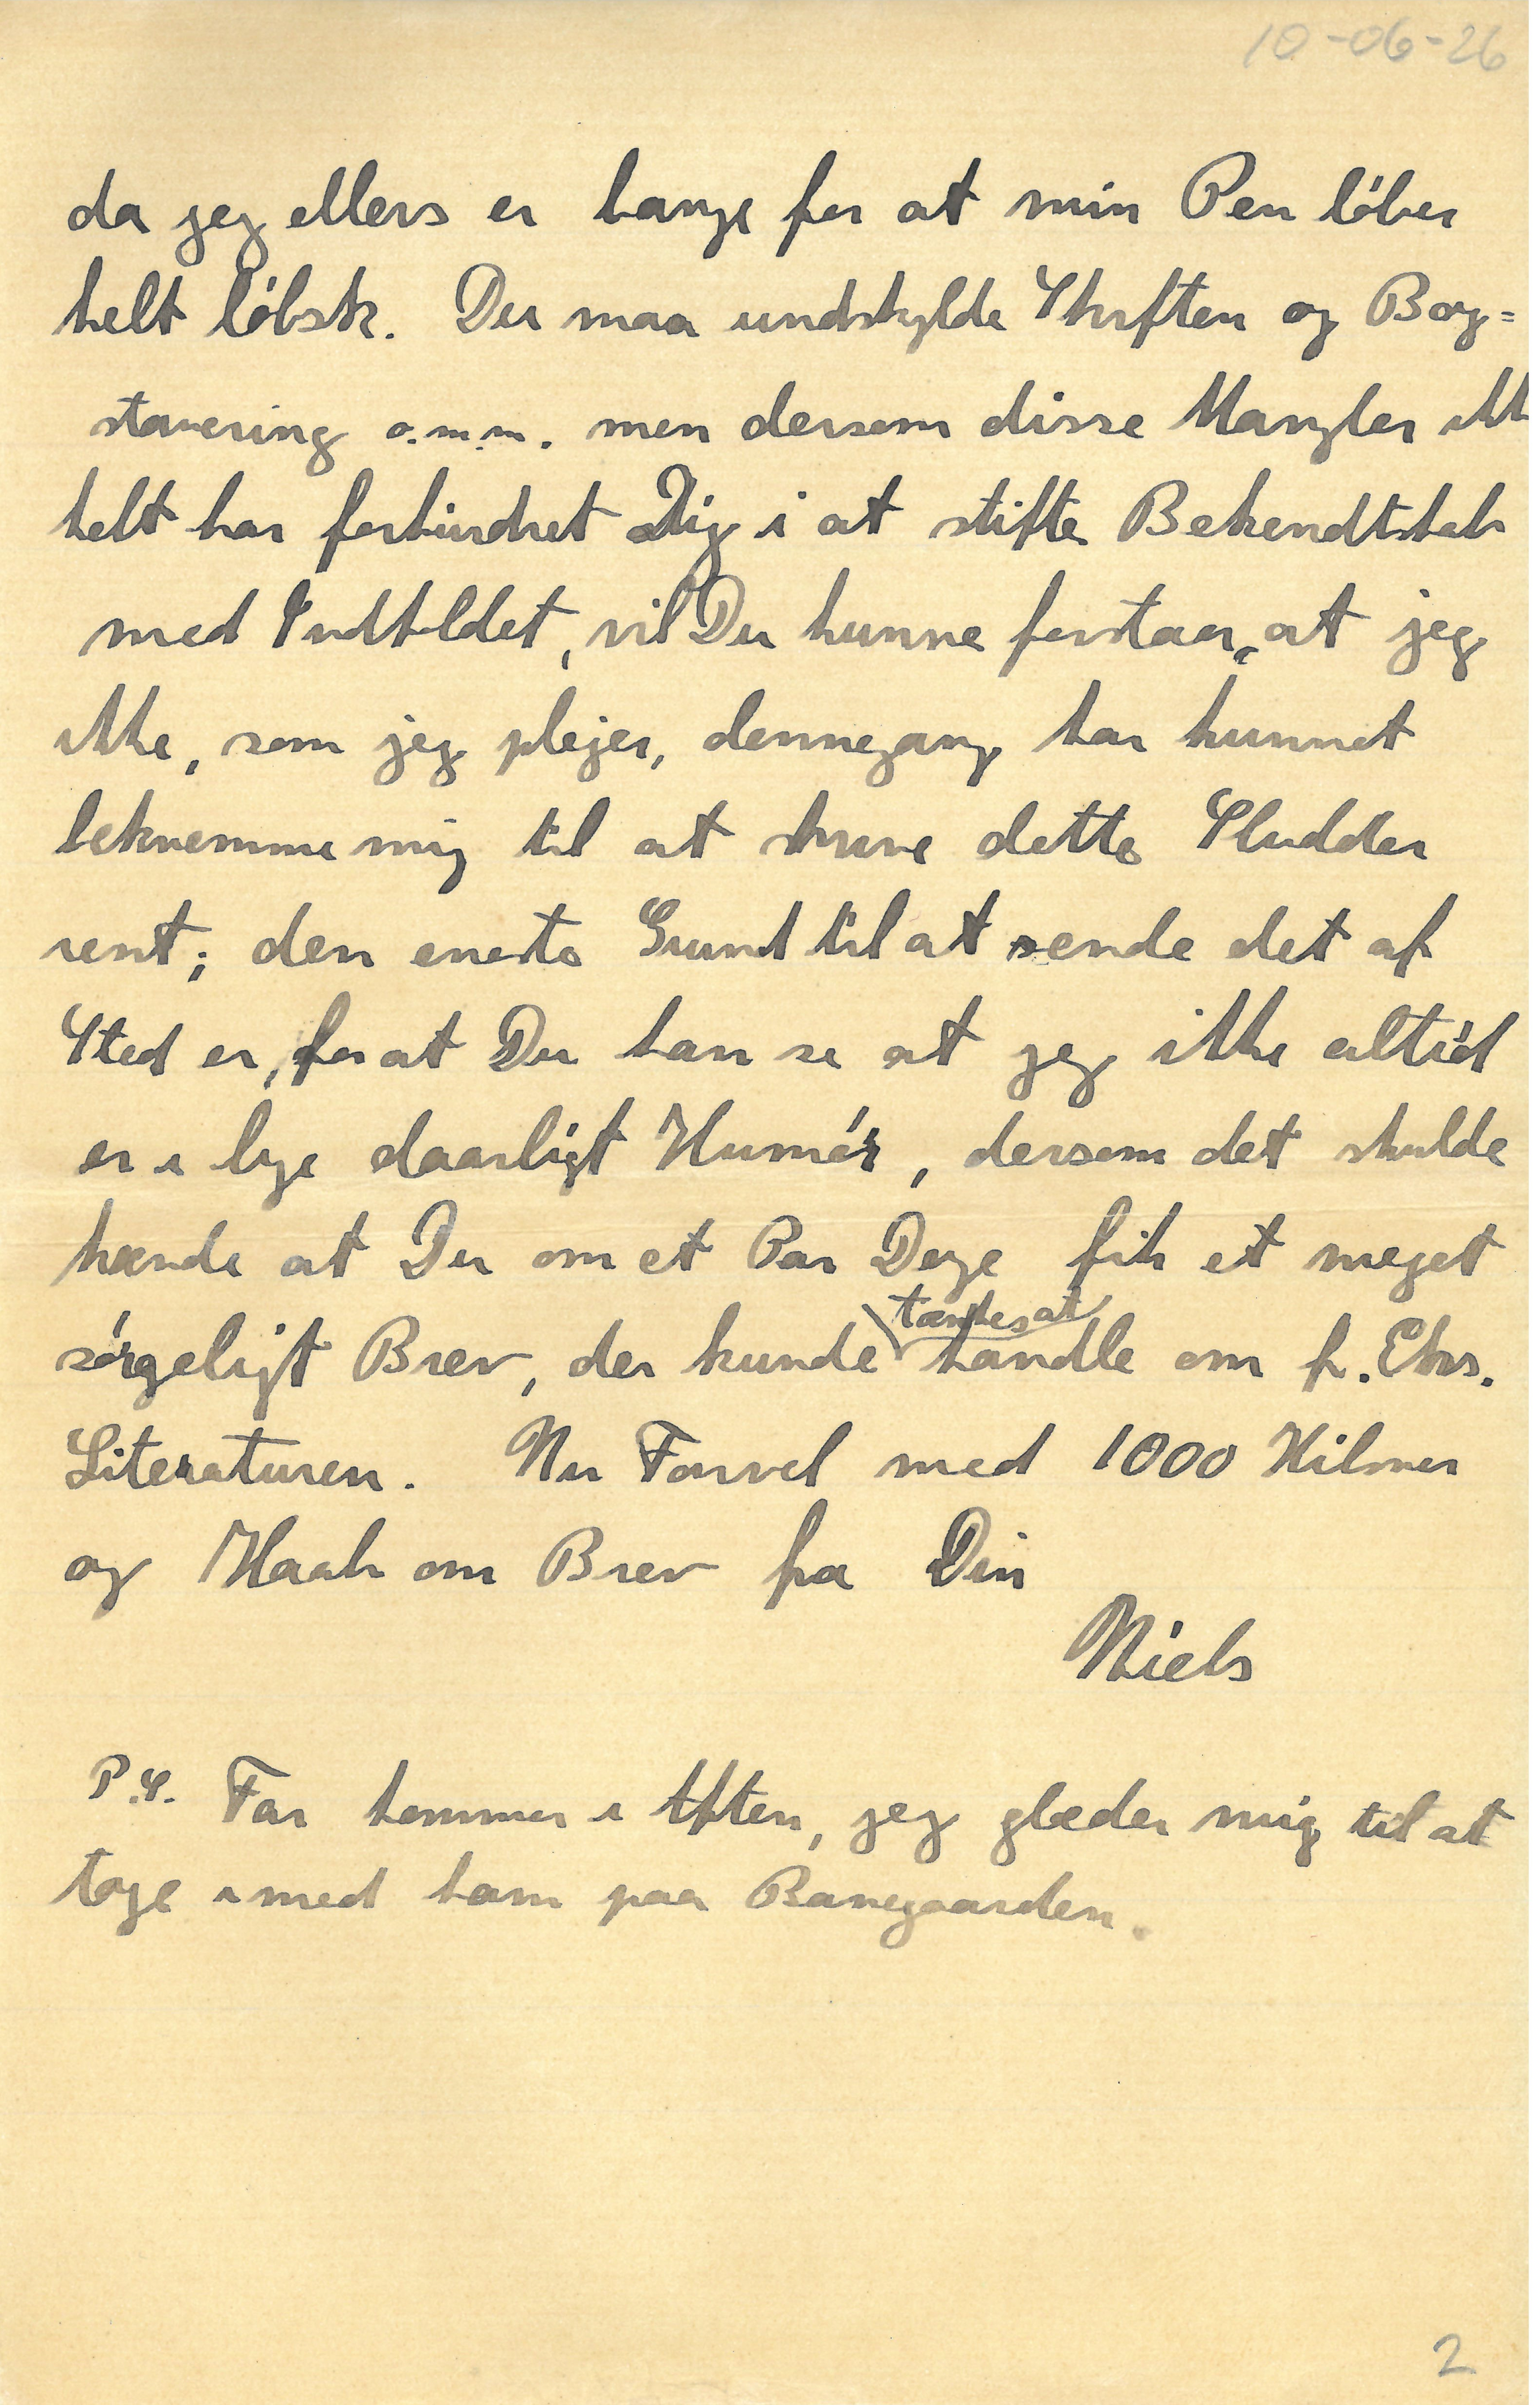 10-06-26
da jeg ellers er bange for at min Pen löber
helt löbsk. Du maa undskylde Skriften og Bog=
stavering o.m.m. men dersom disse Mangler ikke
helt har forhindret Dig i at stifte Bekendtskab
med Indholdet, vil Du kunne forstaa, at jeg
ikke, som jeg plejer, dennegang har kunnet
bekvemme mig til at skrive dette Sludder
rent; den eneste Grund til at sende det af
Sted er, for at Du kan se at jeg ikke altid
er i lige daarligt Humör, dersom det skulde
hænde at Du om et Par Dage fik et meget
sörgeligt Brev, der kunde tænkes at handle om f. Eks.
Literaturen. Nu Farvel med 1000 Hilsner
og Haab om Brev fra Din
Niels
P.S. Far kommer i Aften, jeg glæder mig til at
tage imod ham paa Banegaarden.
2